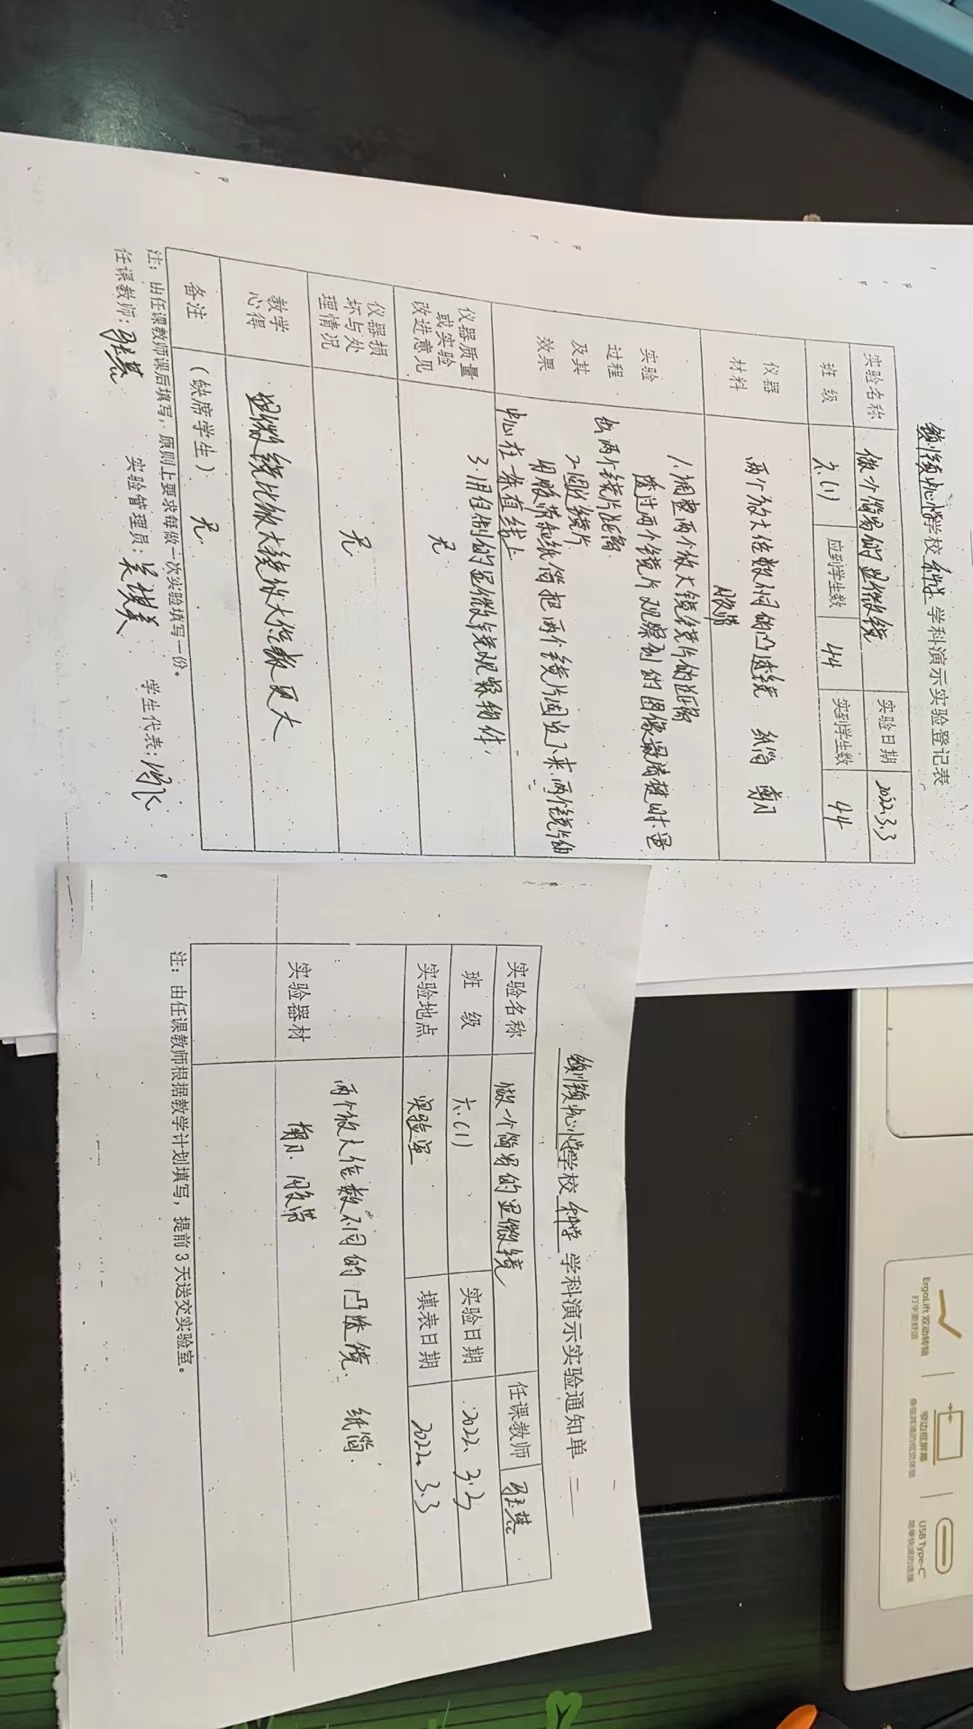 学校 科学 学科演示实验登记表
实验名称 做一个简易的显微镜 实验日期 2022.3.3
班级 六.(1) 应到学生数 44 实到学生数 44
仪器
材料
两个放大倍数不同的凸透镜 纸筒 剪刀
胶带
实验
过程
及其
效果
1.调整两个放大镜镜片的距离
透过两个镜片观察到的图像最清楚时,量
出两个镜片距离
2.固定镜片
用胶带和纸筒把两个镜片固定下来.两个镜片的
中心在一条直线上
3.用自制的显微镜观察物件.
仪器质量
或实验
改进意见
无
仪器损
坏与处
理情况
无
教学
心得
显微镜比放大镜放大倍数更大
备注 (缺席学生) 无
注:由任课教师课后填写,原则上要求每做一次实验填写一份。
任课教师: 实验管理员: 学生代表:
学校 科学 学科演示实验通知单
实验名称 做一个简易的显微镜 任课教师
班级 六.(1) 实验日期 2022.3.3
实验地点 实验室 填表日期 2022.3.3
实验器材
两个放大倍数不同的凸透镜、纸筒.
剪刀.胶带
注:由任课教师根据教学计划填写,提前3天送交实验室。
ErgoLift 双动转轴
打字更舒适
窄边框屏幕
USB Type-C™